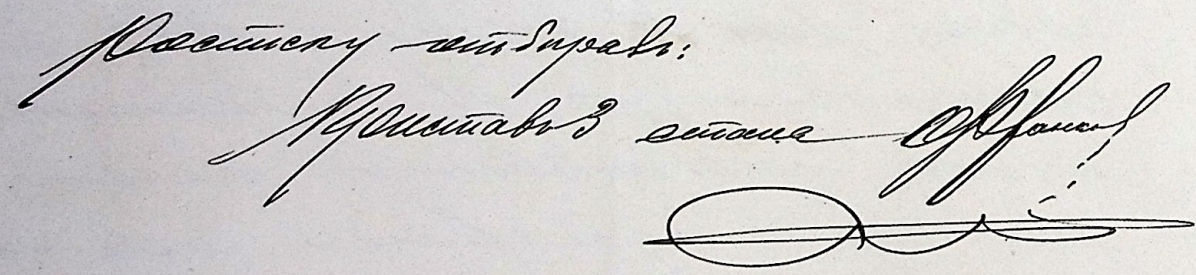 Расписку отбиралъ:
Приставъ 3 стана